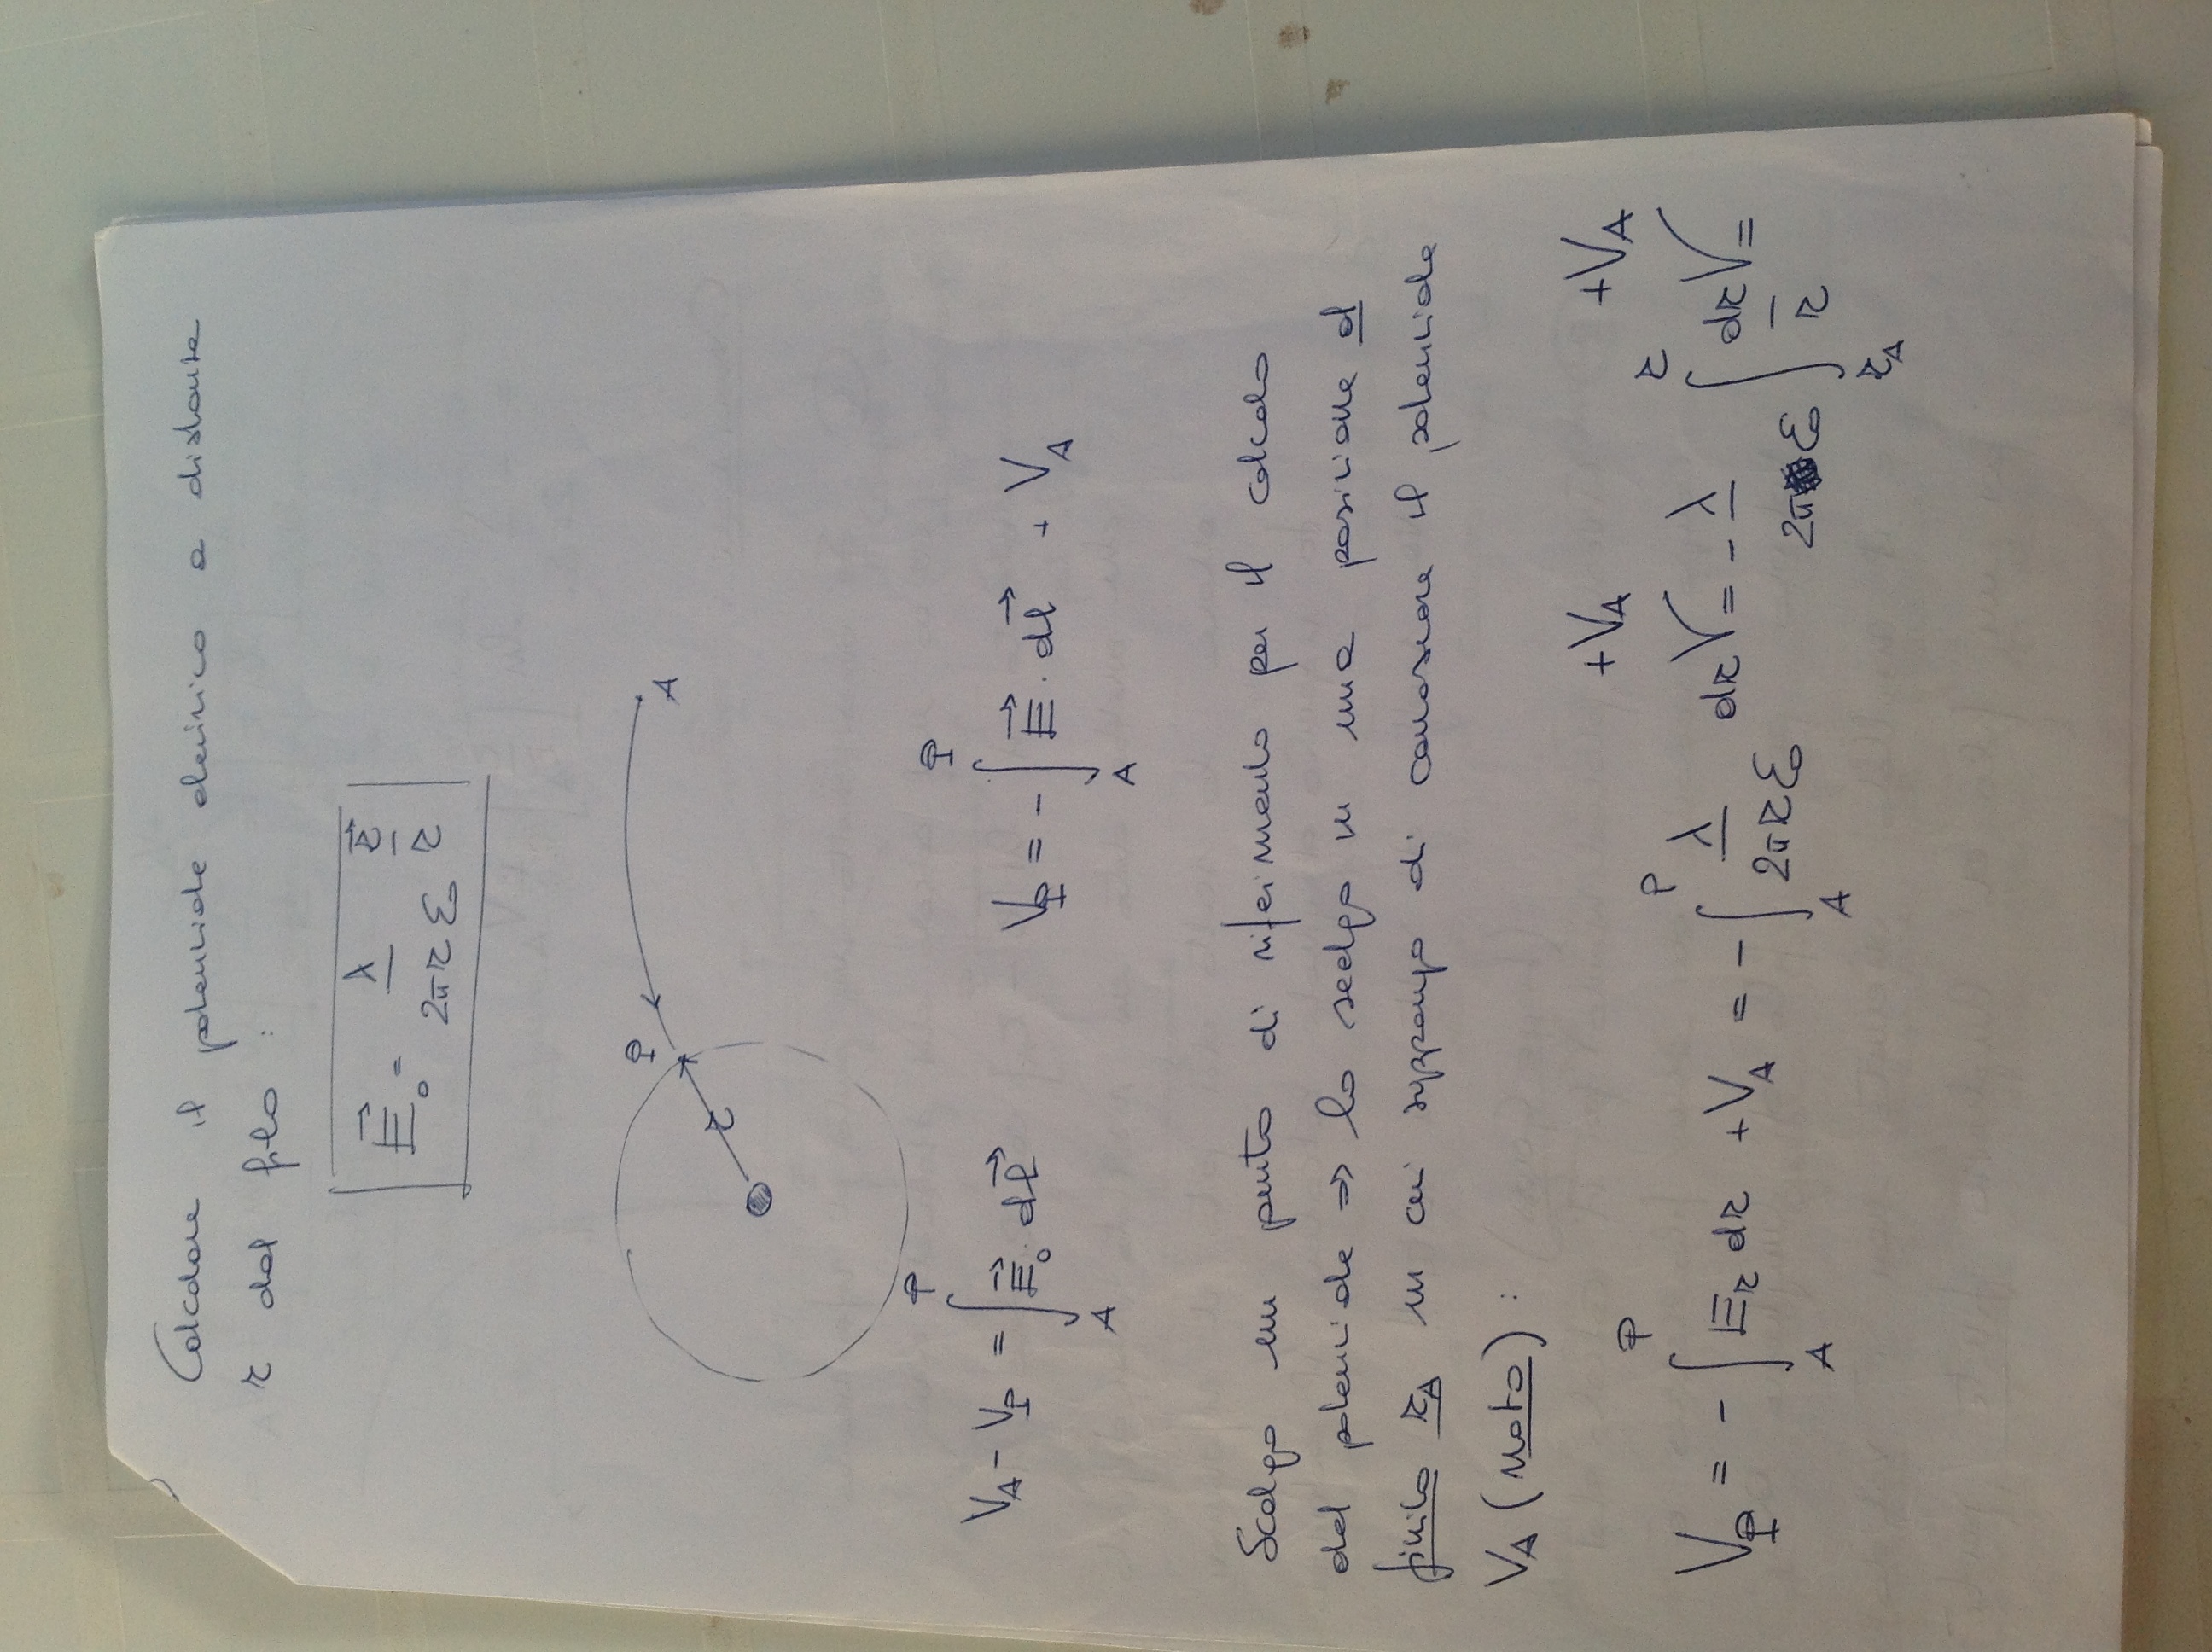 Calcolare il potenziale elettrico a distanza
r dal filo :
E⃗₀ = λ / 2πrε₀ r⃗ / r
P
A
r
V_A - V_P = ∫_A^P E⃗₀ · dl⃗
V_P = - ∫_A^P E⃗ · dl⃗ + V_A
Scelgo un punto di riferimento per il calcolo
del potenziale ⇒ lo scelgo in una posizione al
finito r_A in cui suppongo di conoscere il potenziale
V_A (noto) :
V_P = - ∫_A^P E_r dr + V_A = - ∫_A^P λ / 2πrε₀ dr + V_A = - λ / 2πε₀ ∫_{r_A}^r dr / r + V_A =